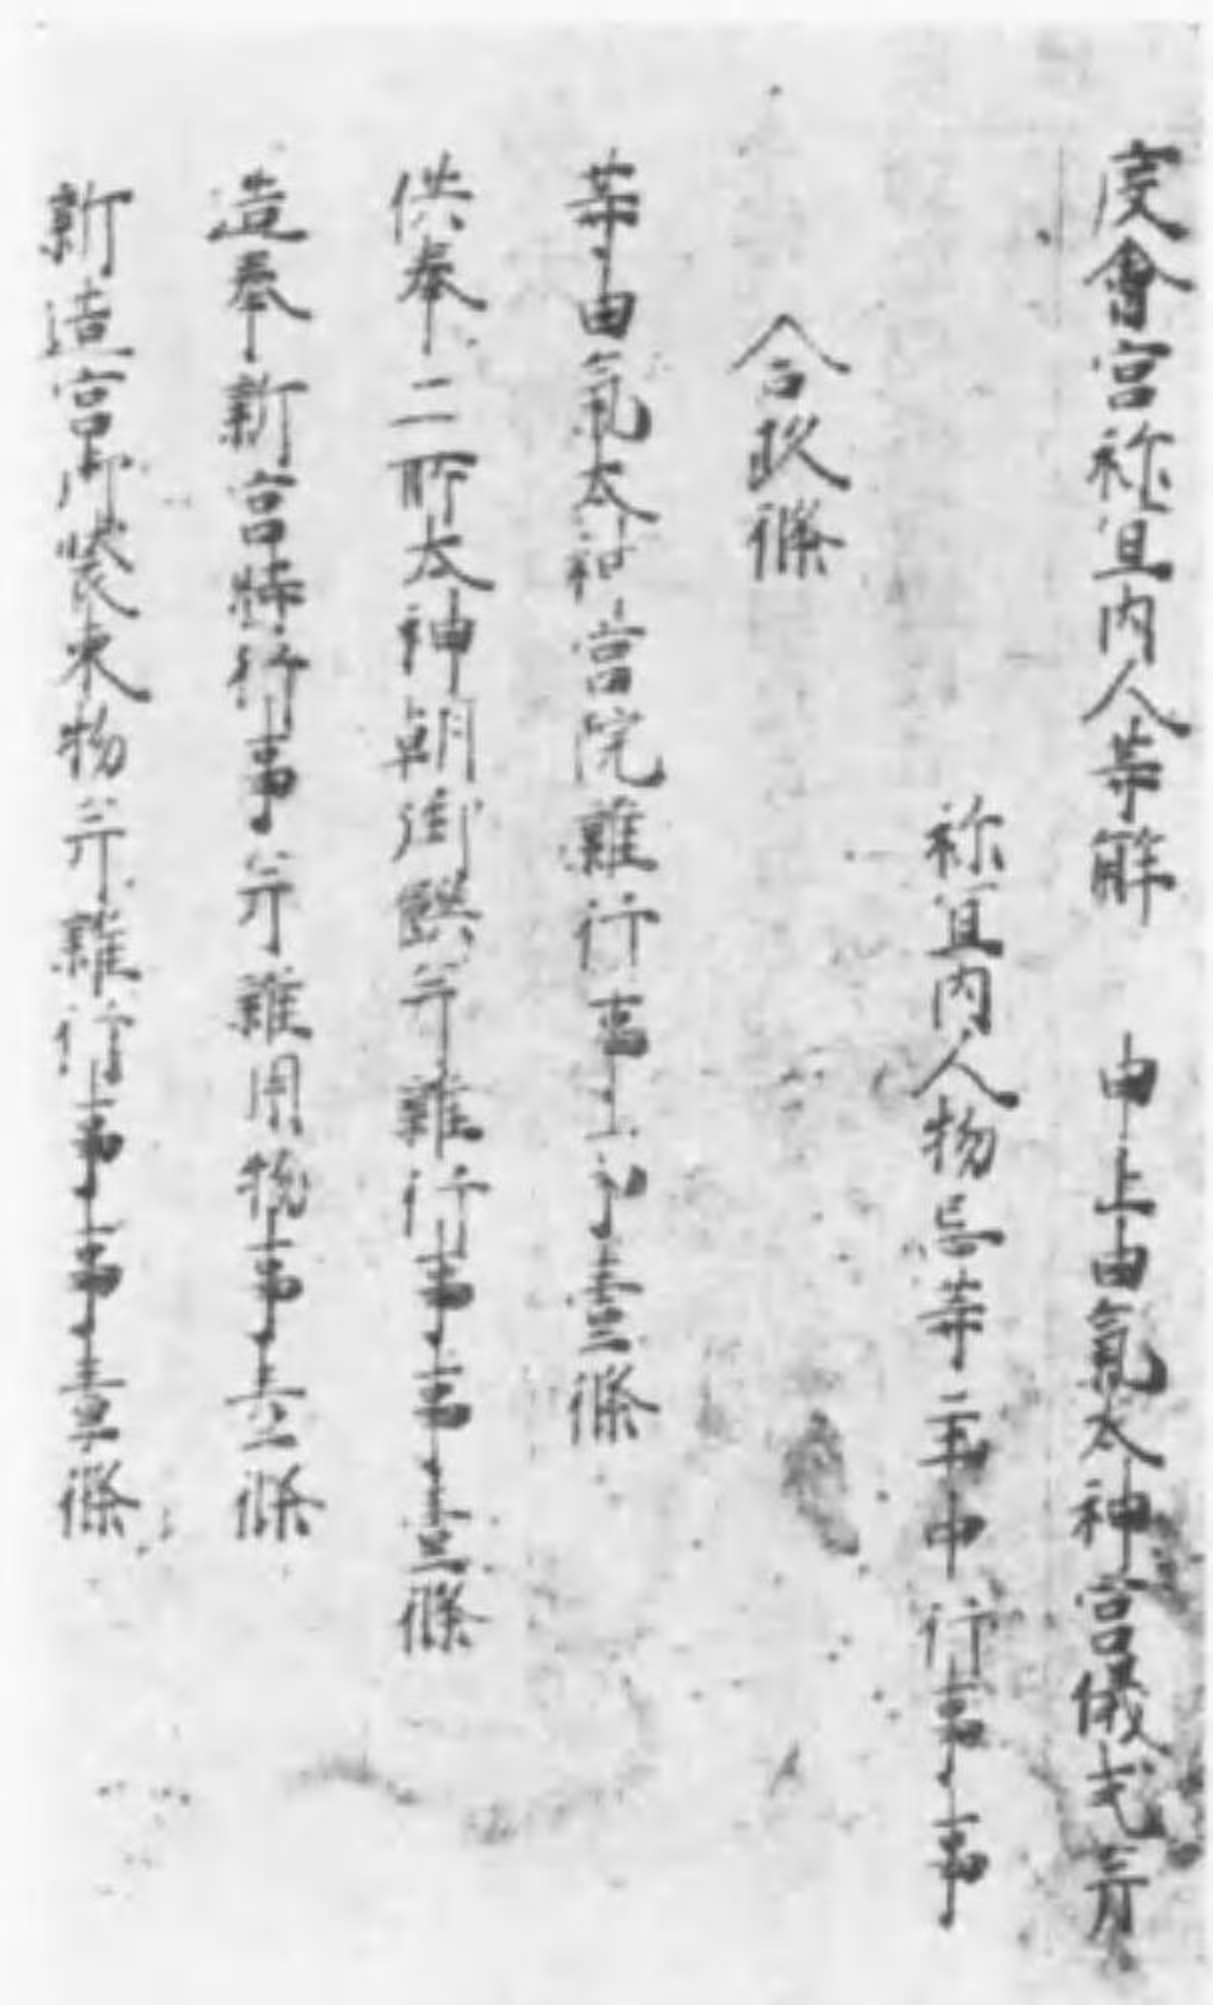 度會宮祢宜内人等解 申上由氣太神宮儀式并
祢宜内人物忌等年中行事事
合玖條
等由氣太神宮院雜行事 壹條
供奉二所太神朝御饌并雜行事事壹條
造奉新宮時行事并雜用物事壹條
新造宮御装束物并雜行事事壹條